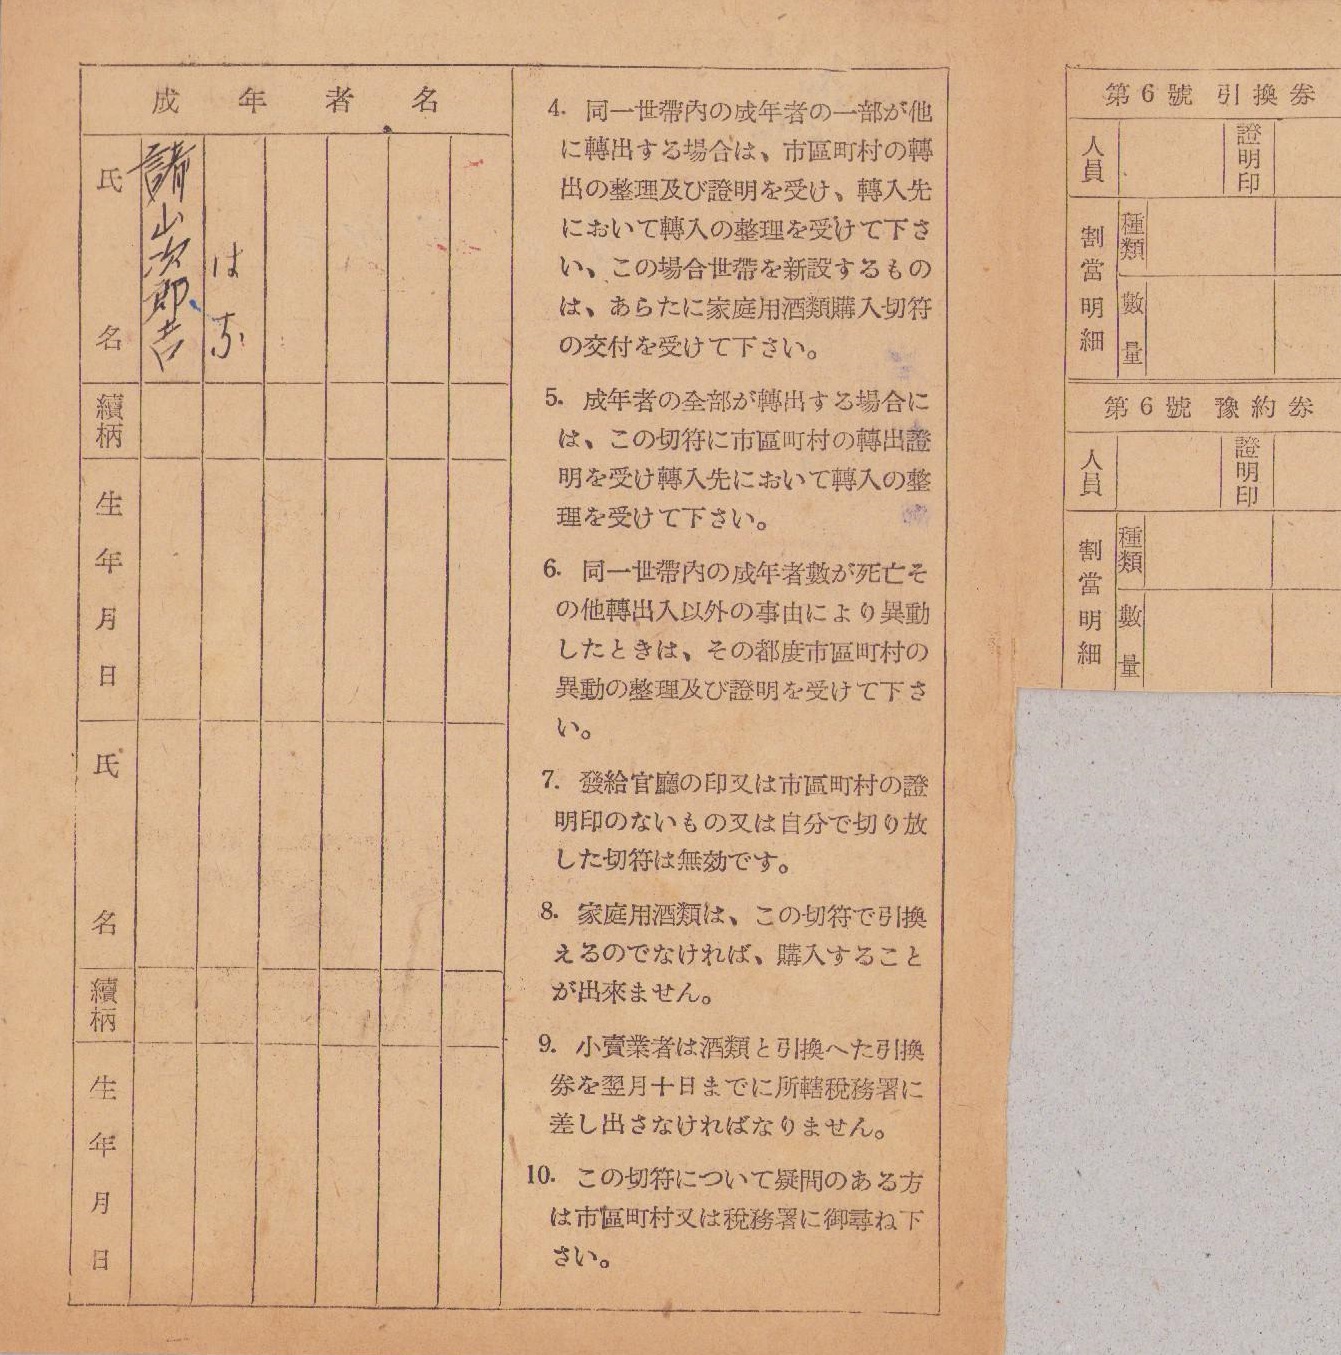 成年者名
氏名
諸山次郎吉
はな
續柄
生年月日
氏名
續柄
生年月日
4. 同一世帶内の成年者の一部が他
に轉出する場合は、市區町村の轉
出の整理及び證明を受け、轉入先
において轉入の整理を受けて下さ
い、この場合世帶を新設するもの
は、あらたに家庭用酒類購入切符
の交付を受けて下さい。
5. 成年者の全部が轉出する場合に
は、この切符に市區町村の轉出證
明を受け轉入先において轉入の整
理を受けて下さい。
6. 同一世帶内の成年者數が死亡そ
の他轉出入以外の事由により異動
したときは、その都度市區町村の
異動の整理及び證明を受けて下さ
い。
7. 發給官廳の印又は市區町村の證
明印のないもの又は自分で切り放
した切符は無効です。
8. 家庭用酒類は、この切符で引換
えるのでなければ、購入すること
が出來ません。
9. 小賣業者は酒類と引換へた引換
券を翌月十日までに所轄税務署に
差し出さなければなりません。
10. この切符について疑問のある方
は市區町村又は税務署に御尋ね下
さい。
第6號 引換券
人員
證明印
割當明細
種類
數量
第6號 豫約券
人員
證明印
割當明細
種類
數量